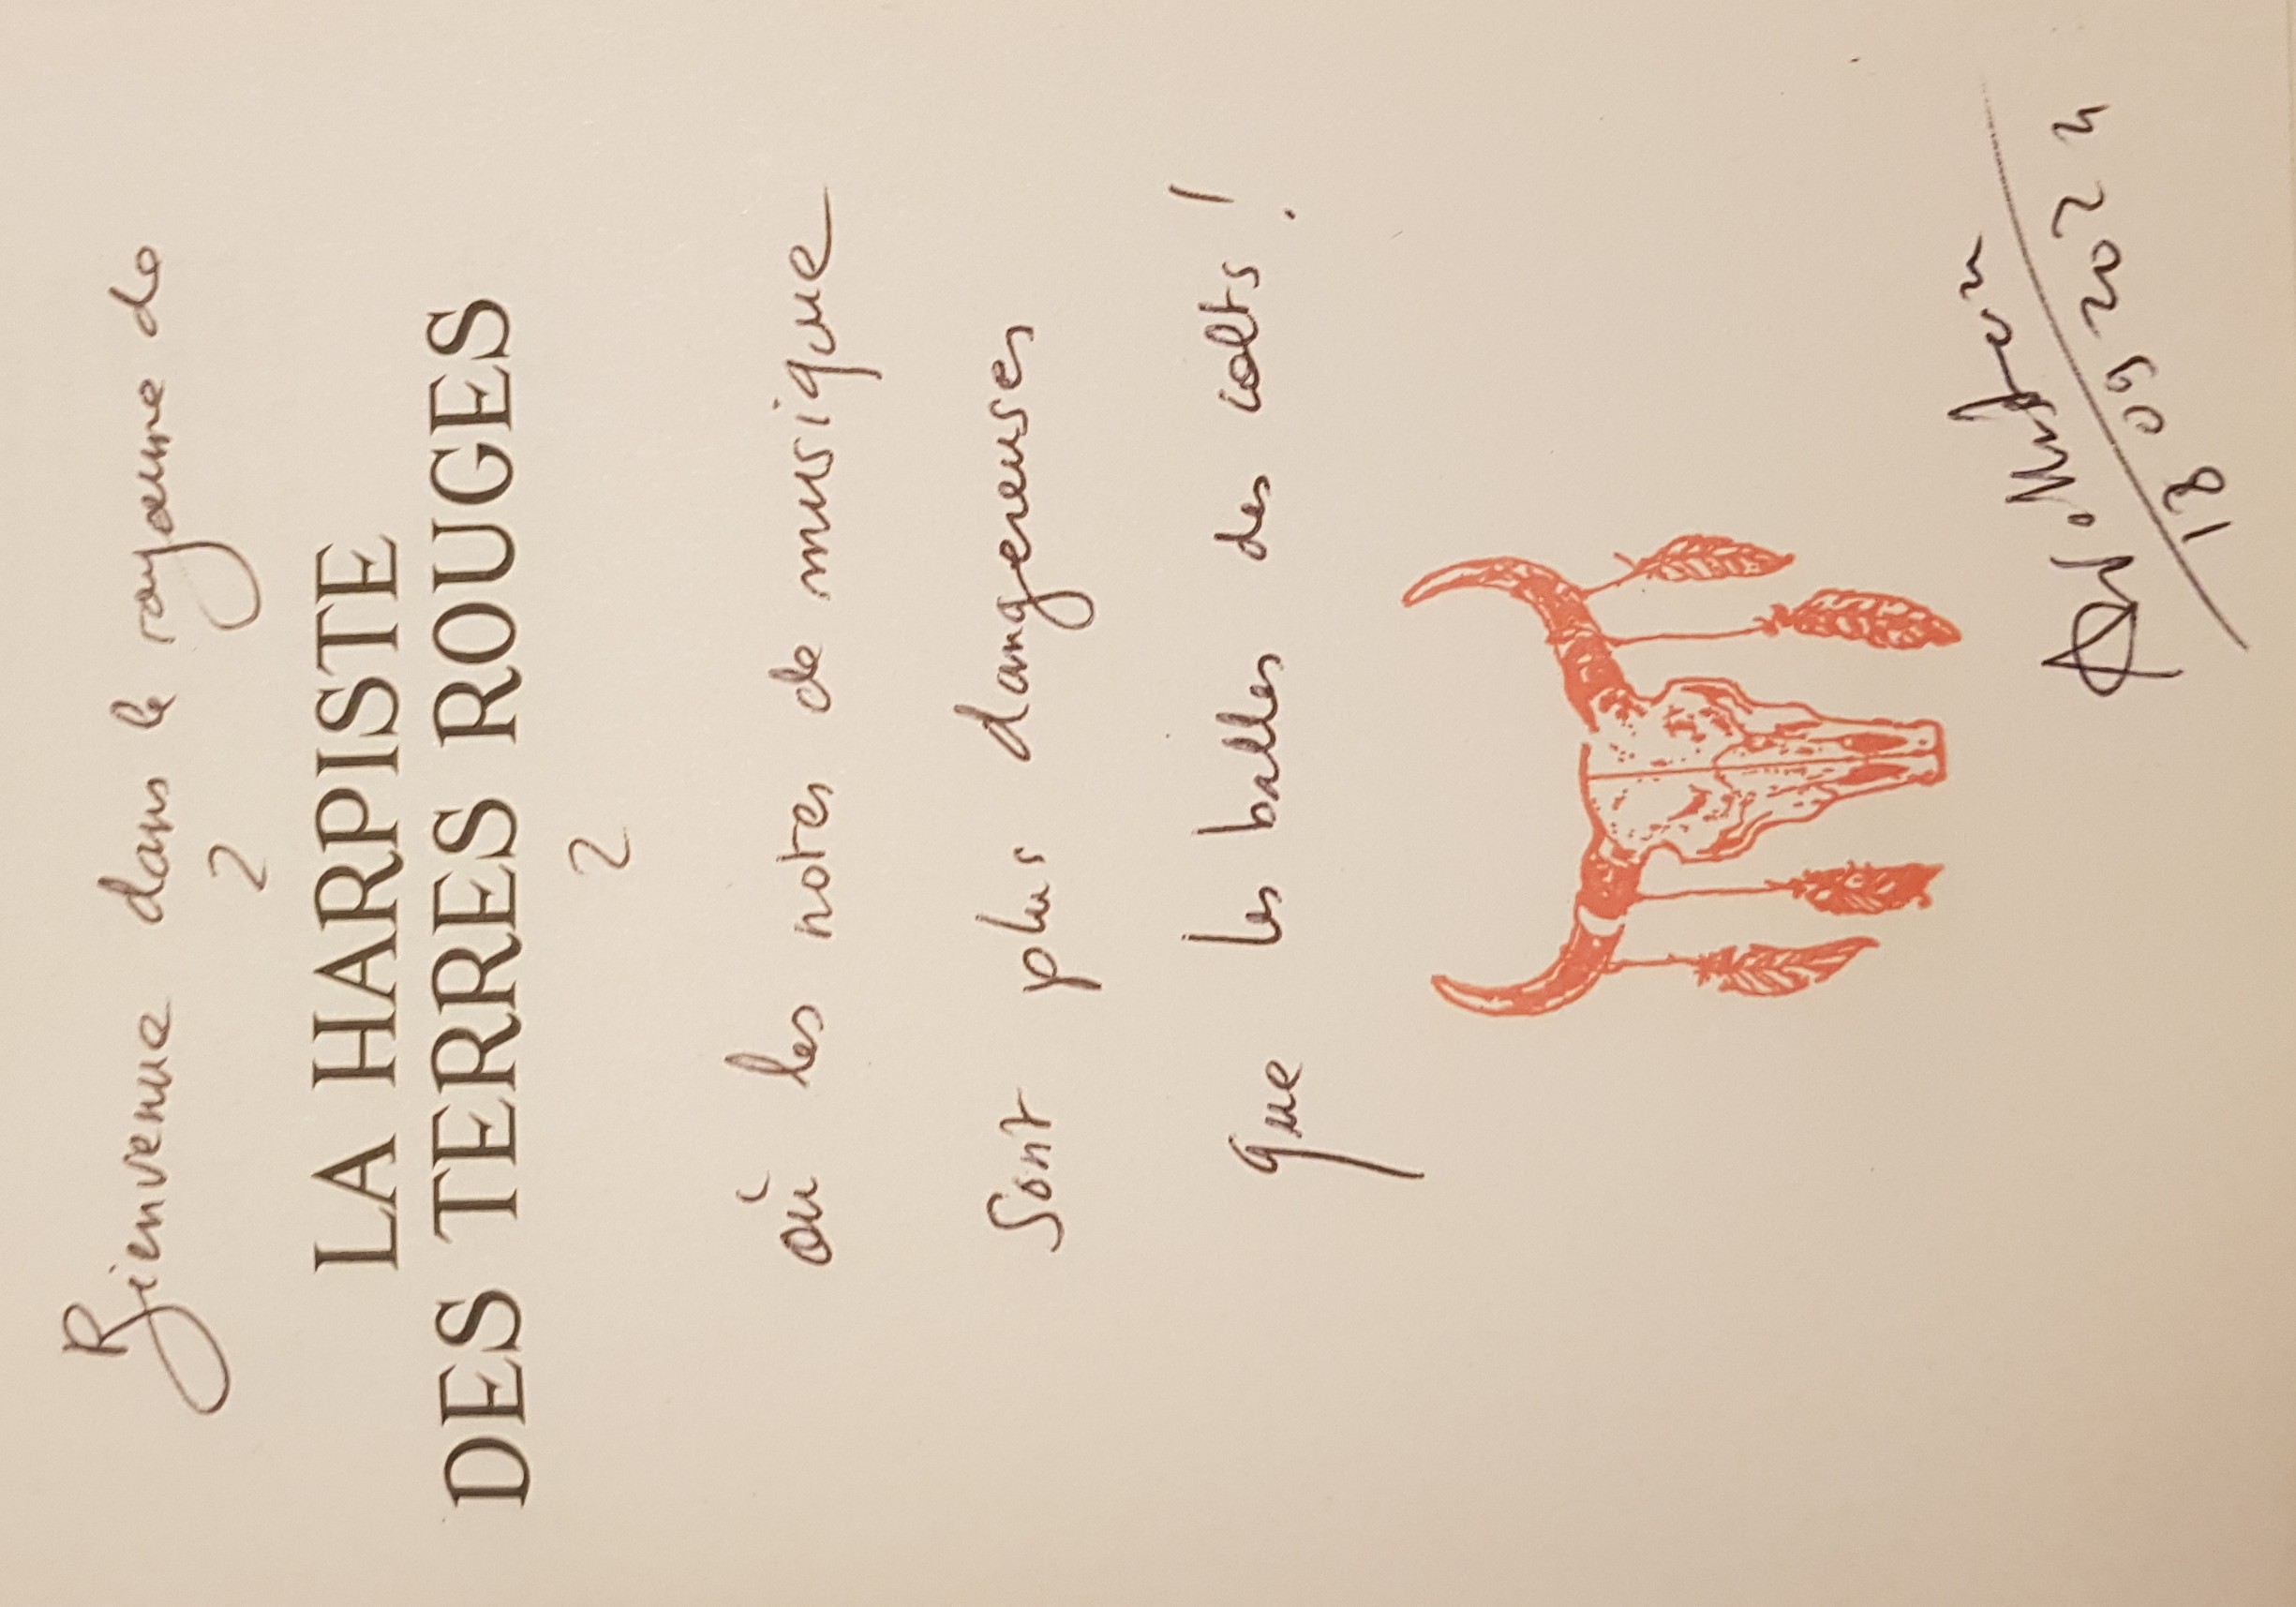 Bienvenue dans le royaume de
2
LA HARPISTE
DES TERRES ROUGES
2
où les notes de musique
sont plus dangereuses
que les balles des colts !
18 09 2024